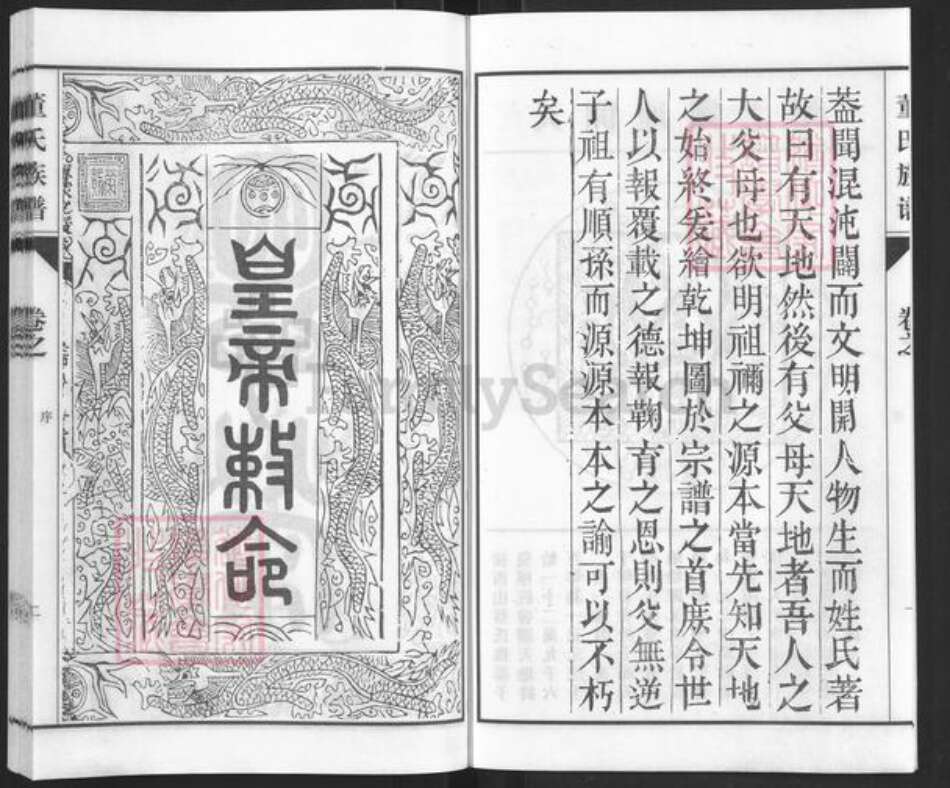 蓋聞混沌闢而文明開人物生而姓氏著
故曰有天地然後有父母天地者吾人之
大父母也欲明祖禰之源本當先知天地
之始終爰繪乾坤圖於宗譜之首庶令世
人以報覆載之德報鞠育之恩則父無逆
子祖有順孫而源源本本之諭可以不朽
矣
皇帝敕命
董氏族譜
卷之
序
FamilySearch